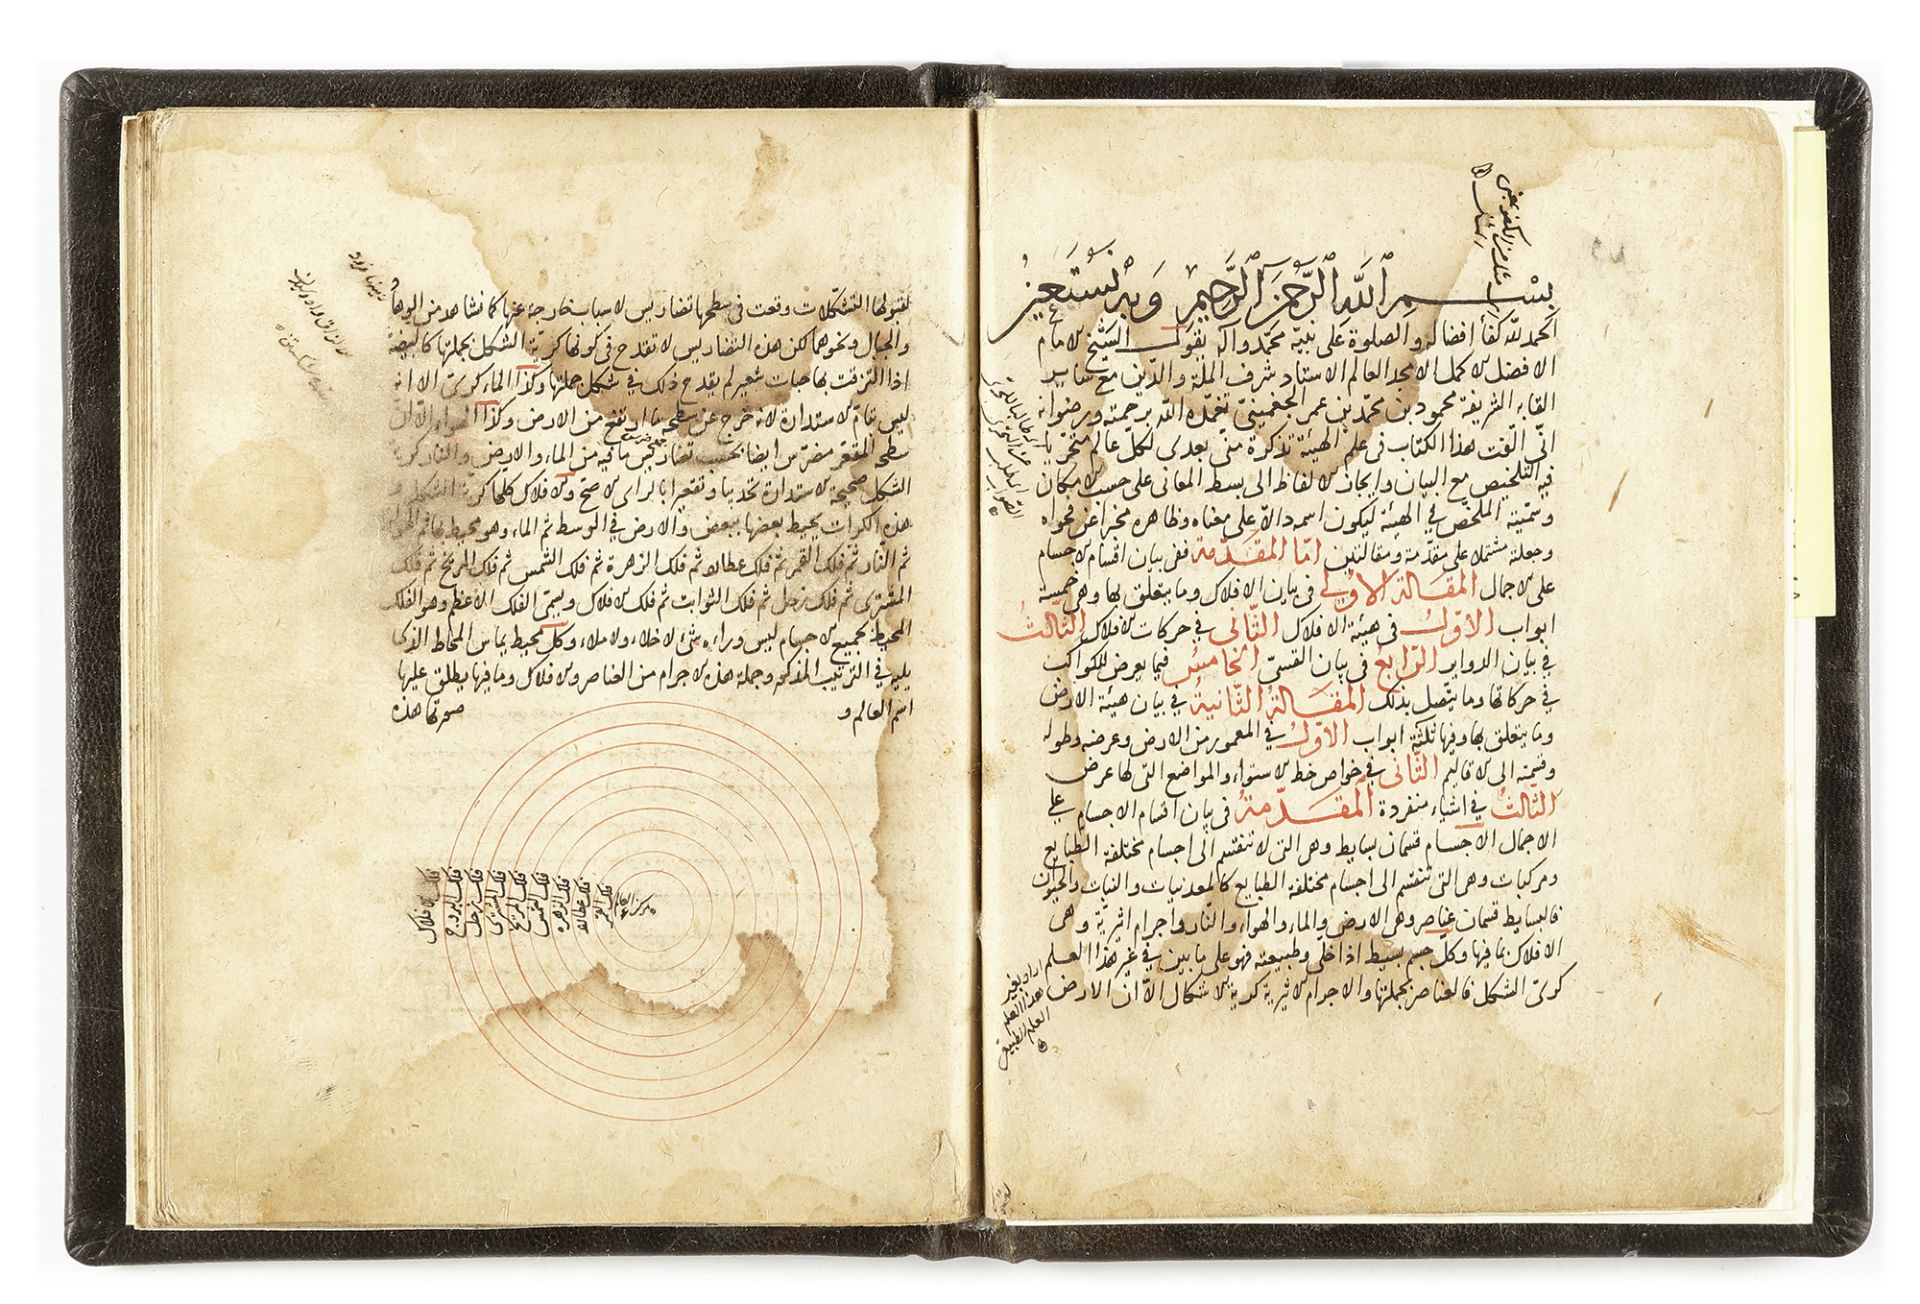 بسم الله الرحمن الرحيم وبه نستعين
الحمد لله كفأ افضاله والصلوة على نبيه محمد وآله يقول الشيخ الامام
الافضل الاكمل الامجد العالم الاستاد شرف الملة والدين مع ساير
القابه الشريفة محمود بن محمد بن عمر الجغميني تغمده الله برحمته ورضوانه
انى الفت هذا الكتاب فى علم الهيئة تذكرة منى بعدى لكل عالم متحريا
فيه التلخيص مع البيان وايجاز الالفاظ الى بسط المعانى على حسب الامكان
وسميته الملخص في الهيئة ليكون اسمه دالا على معناه وظاهره مخبرا عن فحواه
وجعلته مشتملا على مقدمة ومقالتين اما المقدمة ففى بيان اقسام الاجسام
على الاجمال المقالة الاولى فى بيان الافلاك وما يتعلق بها وهى خمسة
ابواب الاول فى هيئة الافلاك الثانى في حركات الافلاك الثالث
في بيان الدواير الرابع فى بيان القسى الخامس فيما يعرض للكواكب
في حركاتها وما يتصل بذلك المقالة الثانية في بيان هيئة الارض
وما يتعلق بها وفيها ثلثة ابواب الاول في المعمور من الارض وعرضه وطوله
وقسمته الى الاقاليم الثانى فى خواص خط الاستواء والمواضع التى لها عرض
الثالث في اشياء منفردة المقدمة فى بيان اقسام الاجسام على
الاجمال الاجسام قسمان بسايط وهى التى لا تنقسم الى اجسام مختلفة الطبايع
ومركبات وهى التى تنقسم الى اجسام مختلفة الطبايع كالمعدنيات والنبات والحيوان
فالبسايط قسمان عناصر وهى الارض والماء والهواء والنار واجرام اثيرية وهى
الافلاك بما فيها وكل جسم بسيط اذا خلى وطبيعته فهو على ما بين في غير هذا العلم
كرى الشكل فالعناصر بجملتها والاجرام الاثيرية كرية الاشكال الا ان الارض
اراد بغير
هذا العلم
العلم الطبيعى
لقبولها التشكلات وقعت فى سطحها تضاريس لاسباب خارجة عنها كما نشاهد من الوهاد
والجبال ونحوهما لكن هذه التضاريس لا تقدح فى كونها كرية الشكل بجملتها كالبيضة
اذا التزقت بها حبات شعير لم يقدح ذلك في شكل جملتها وكذا الماء كرى الا انه
ليس بتام الاستدارة لانه خرج عن سطحه ما ارتفع من الارض وكذا الهواء الا ان
سطحه المقعر مضرس ايضا بحسب تضاريس ما فيه من الماء والارض والنار كرية
الشكل صحيحة الاستدارة تحديبا وتقعيرا بالراى الاصح والافلاك كلها كرية الشكل و
هذه الكرات يحيط بعضها ببعض والارض في الوسط ثم الماء وهو محيط بها ثم الهواء
ثم النار ثم فلك القمر ثم فلك عطارد ثم فلك الزهرة ثم فلك الشمس ثم فلك المريخ ثم فلك
المشترى ثم فلك زحل ثم فلك الثوابت ثم فلك الافلاك ويسمى الفلك الاعظم وهو الفلك
المحيط بجميع الاجسام ليس وراءه شئ لا خلاء ولا ملاء وكل محيط يماس المحاط الذى
يليه في الترتيب المذكور وجملة هذه الاجرام من العناصر والافلاك وما فيها يطلق عليها
اسم العالم و صورتها هذه
مركز العالم
فلك القمر
فلك عطارد
فلك الزهره
فلك الشمس
فلك المريخ
فلك المشترى
فلك زحل
فلك البروج
فلك الافلاك